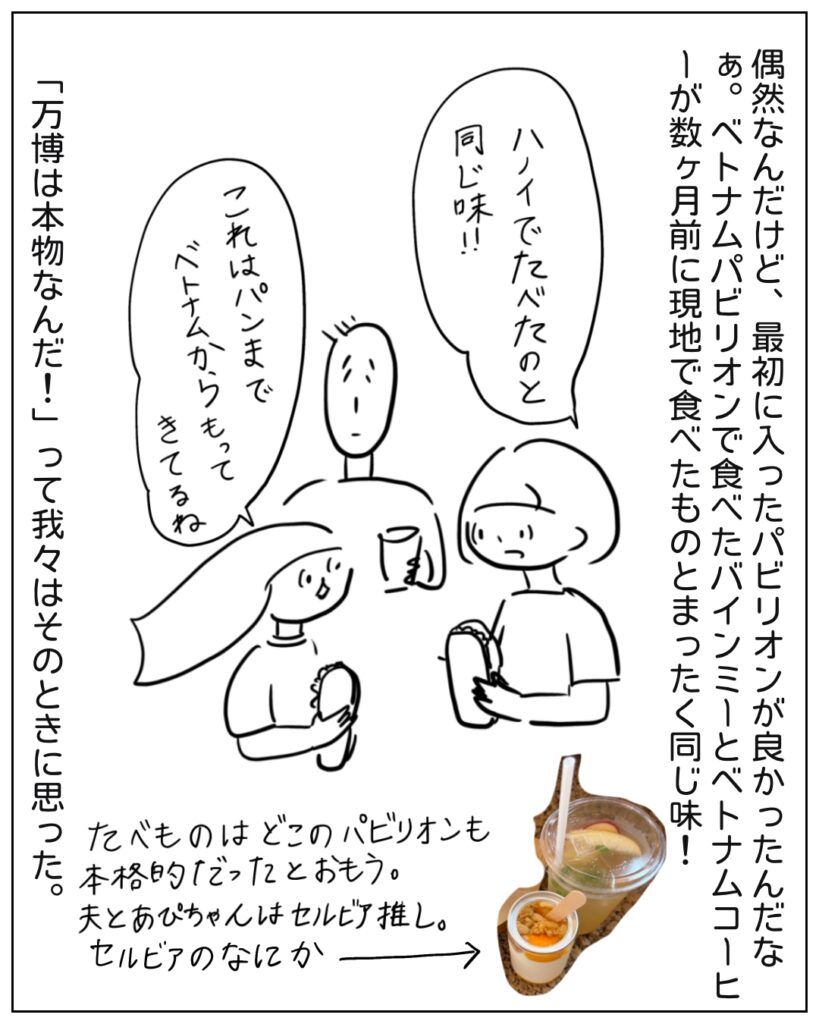 偶然なんだけど、最初に入ったパビリオンが良かったんだな
ぁ。ベトナムパビリオンで食べたバインミーとベトナムコーヒ
ーが数ヶ月前に現地で食べたものとまったく同じ味！
ハノイでたべたのと
同じ味!!
これはパンまで
ベトナムからもって
きてるね
「万博は本物なんだ！」って我々はそのときに思った。
たべものはどこのパビリオンも
本格的だったとおもう。
夫とあぴちゃんはセルビア推し。
セルビアのなにか